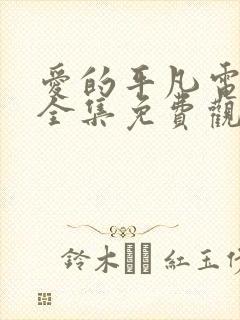 愛的平凡電
全集免費觀
鈴木 紅玉